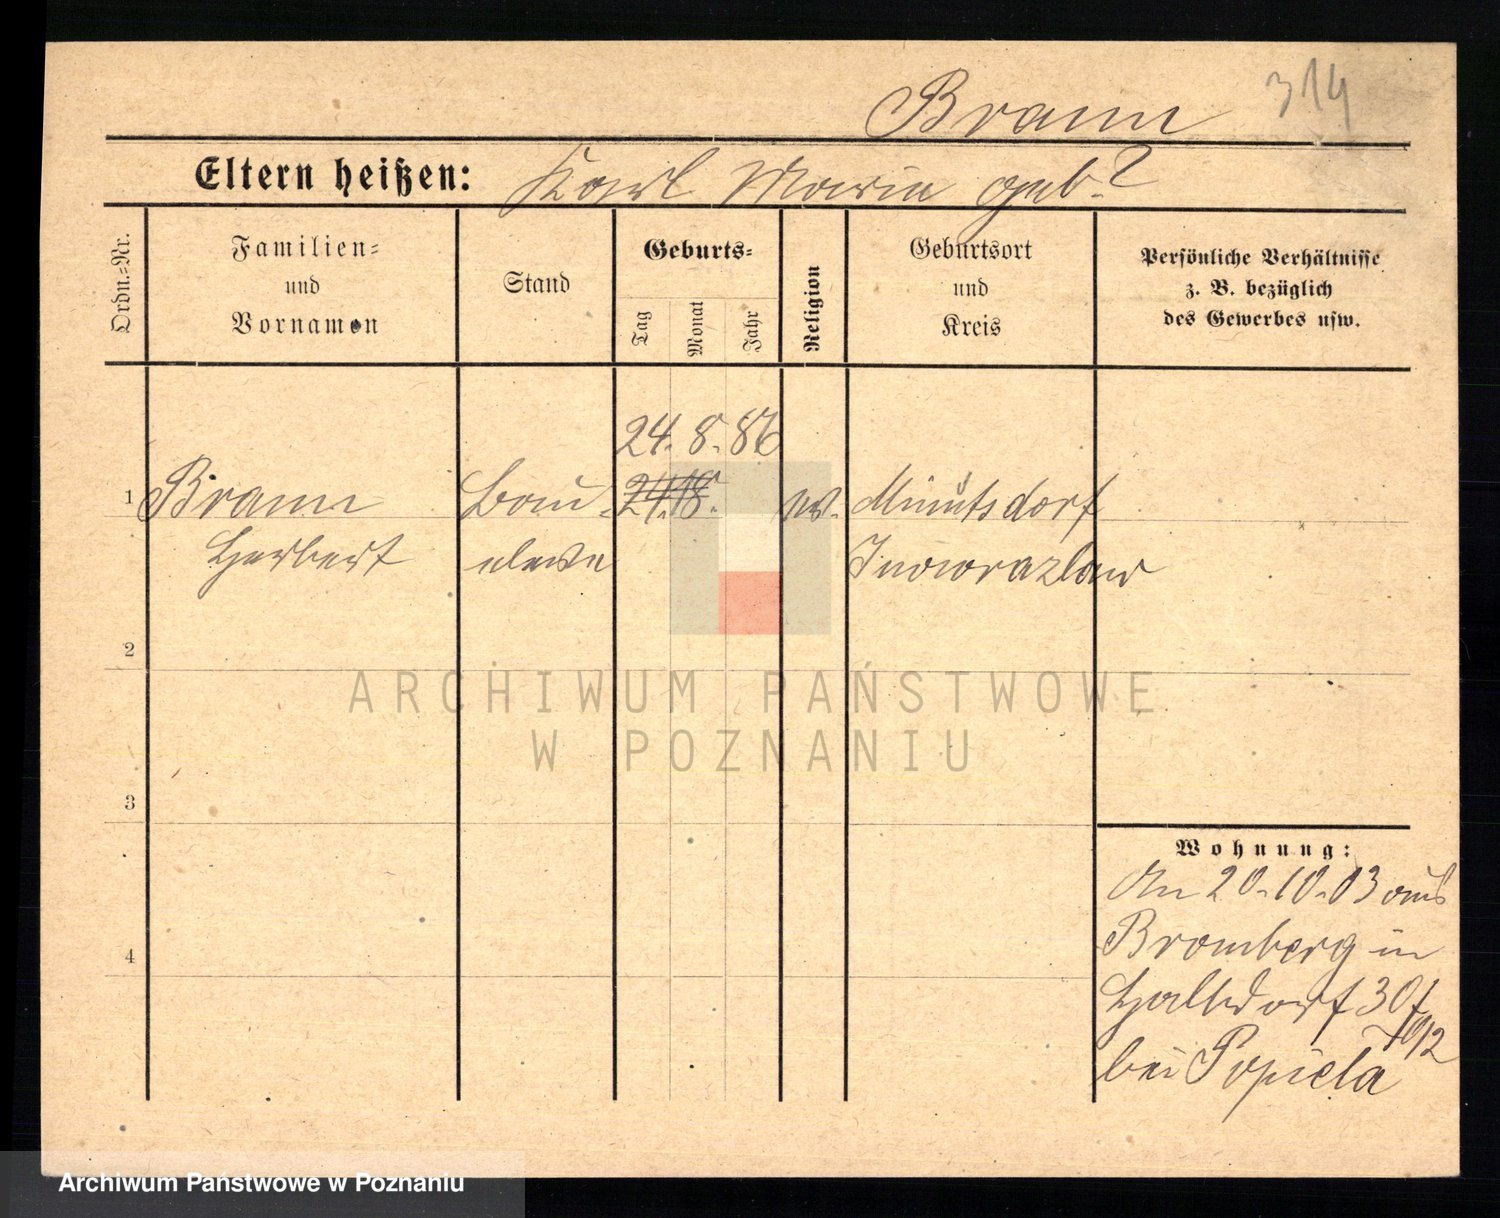 314
Braun
Eltern heißen: Karl Maria geb. ?
Ordn.-Nr.
Familien-
und
Vornamen
Stand
Geburts-
Tag
Monat
Jahr
Religion
Geburtsort
und
Kreis
Persönliche Verhältnisse
z. B. bezüglich
des Gewerbes usw.
24. 8. 86
1 Braun Bau- 24. 18. ev. Minutsdorf
Herbert eleve Inowrazlaw
2
3
4
Wohnung:
An 20.10.03 aus
Bromberg in
Halbdorf 30 f
10/12
bei Popiela
ARCHIWUM PAŃSTWOWE
W POZNANIU
Archiwum Państwowe w Poznaniu